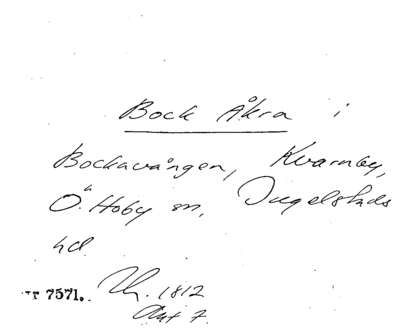 Bock Åkra i
Bockavången, Kvarnby,
Ö. Hoby sn, Ingelstads
hd.
7571. Uh. 1812
Akt 7.